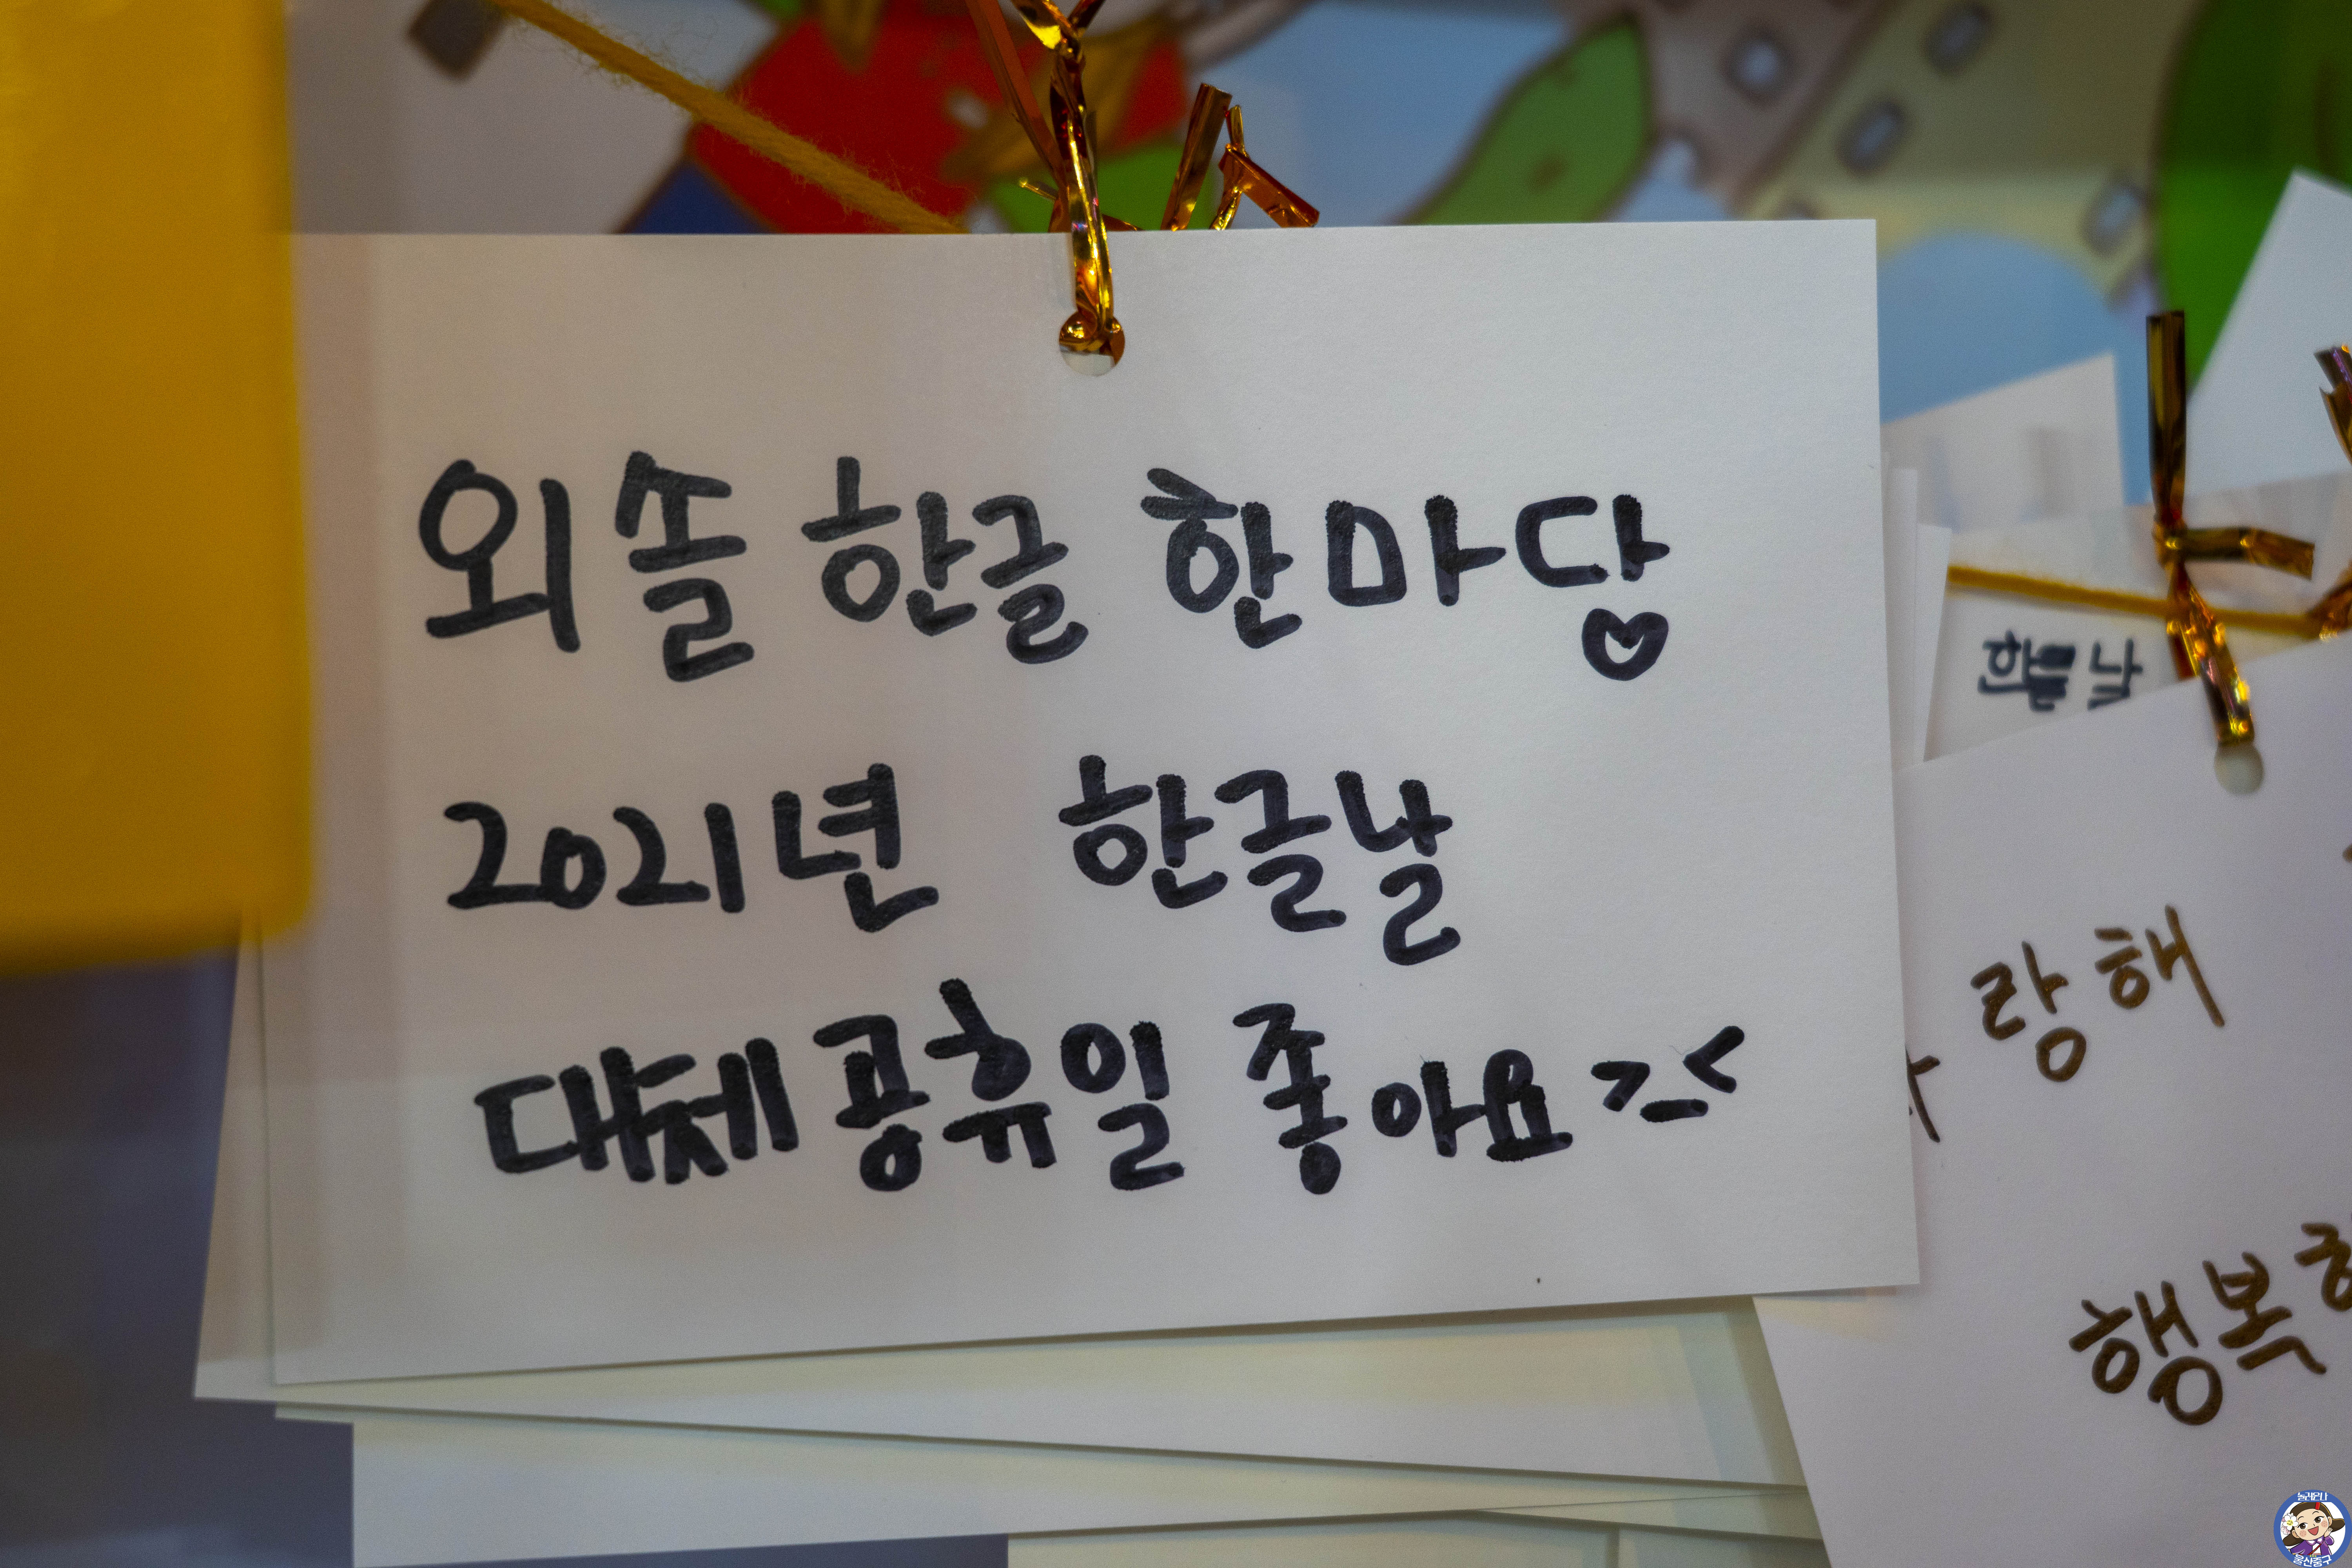 외솔 한글 한마당
2021년 한글날
대체공휴일 좋아요 >_<
한글날
랑해
행복
놀러온나
울산중구